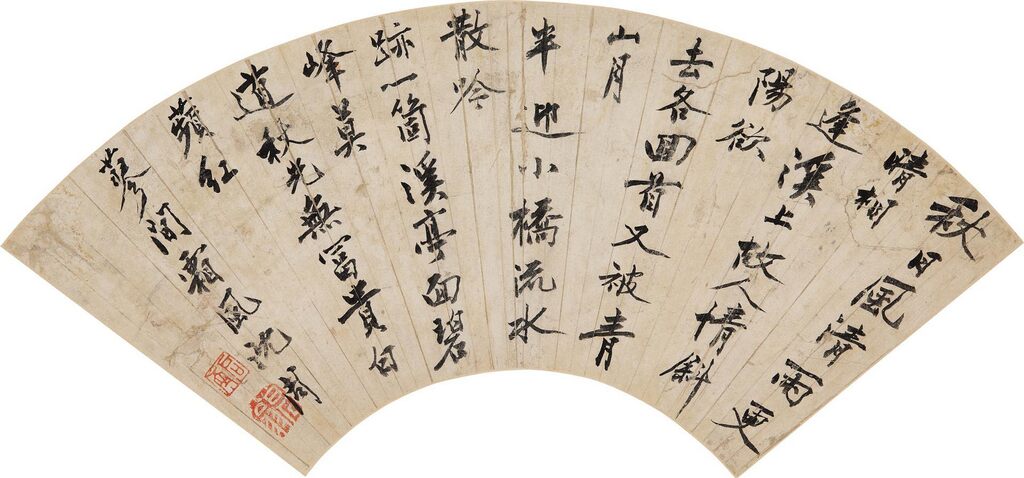 秋日風清雨更
晴相
逢溪上故人情斜
陽欲
去各回首又被青
山月
半迎小橋流水
散吟
跡一箇溪亭面碧
峰莫
道秋光無冨貴白
蘋紅
蓼間霜風沈周